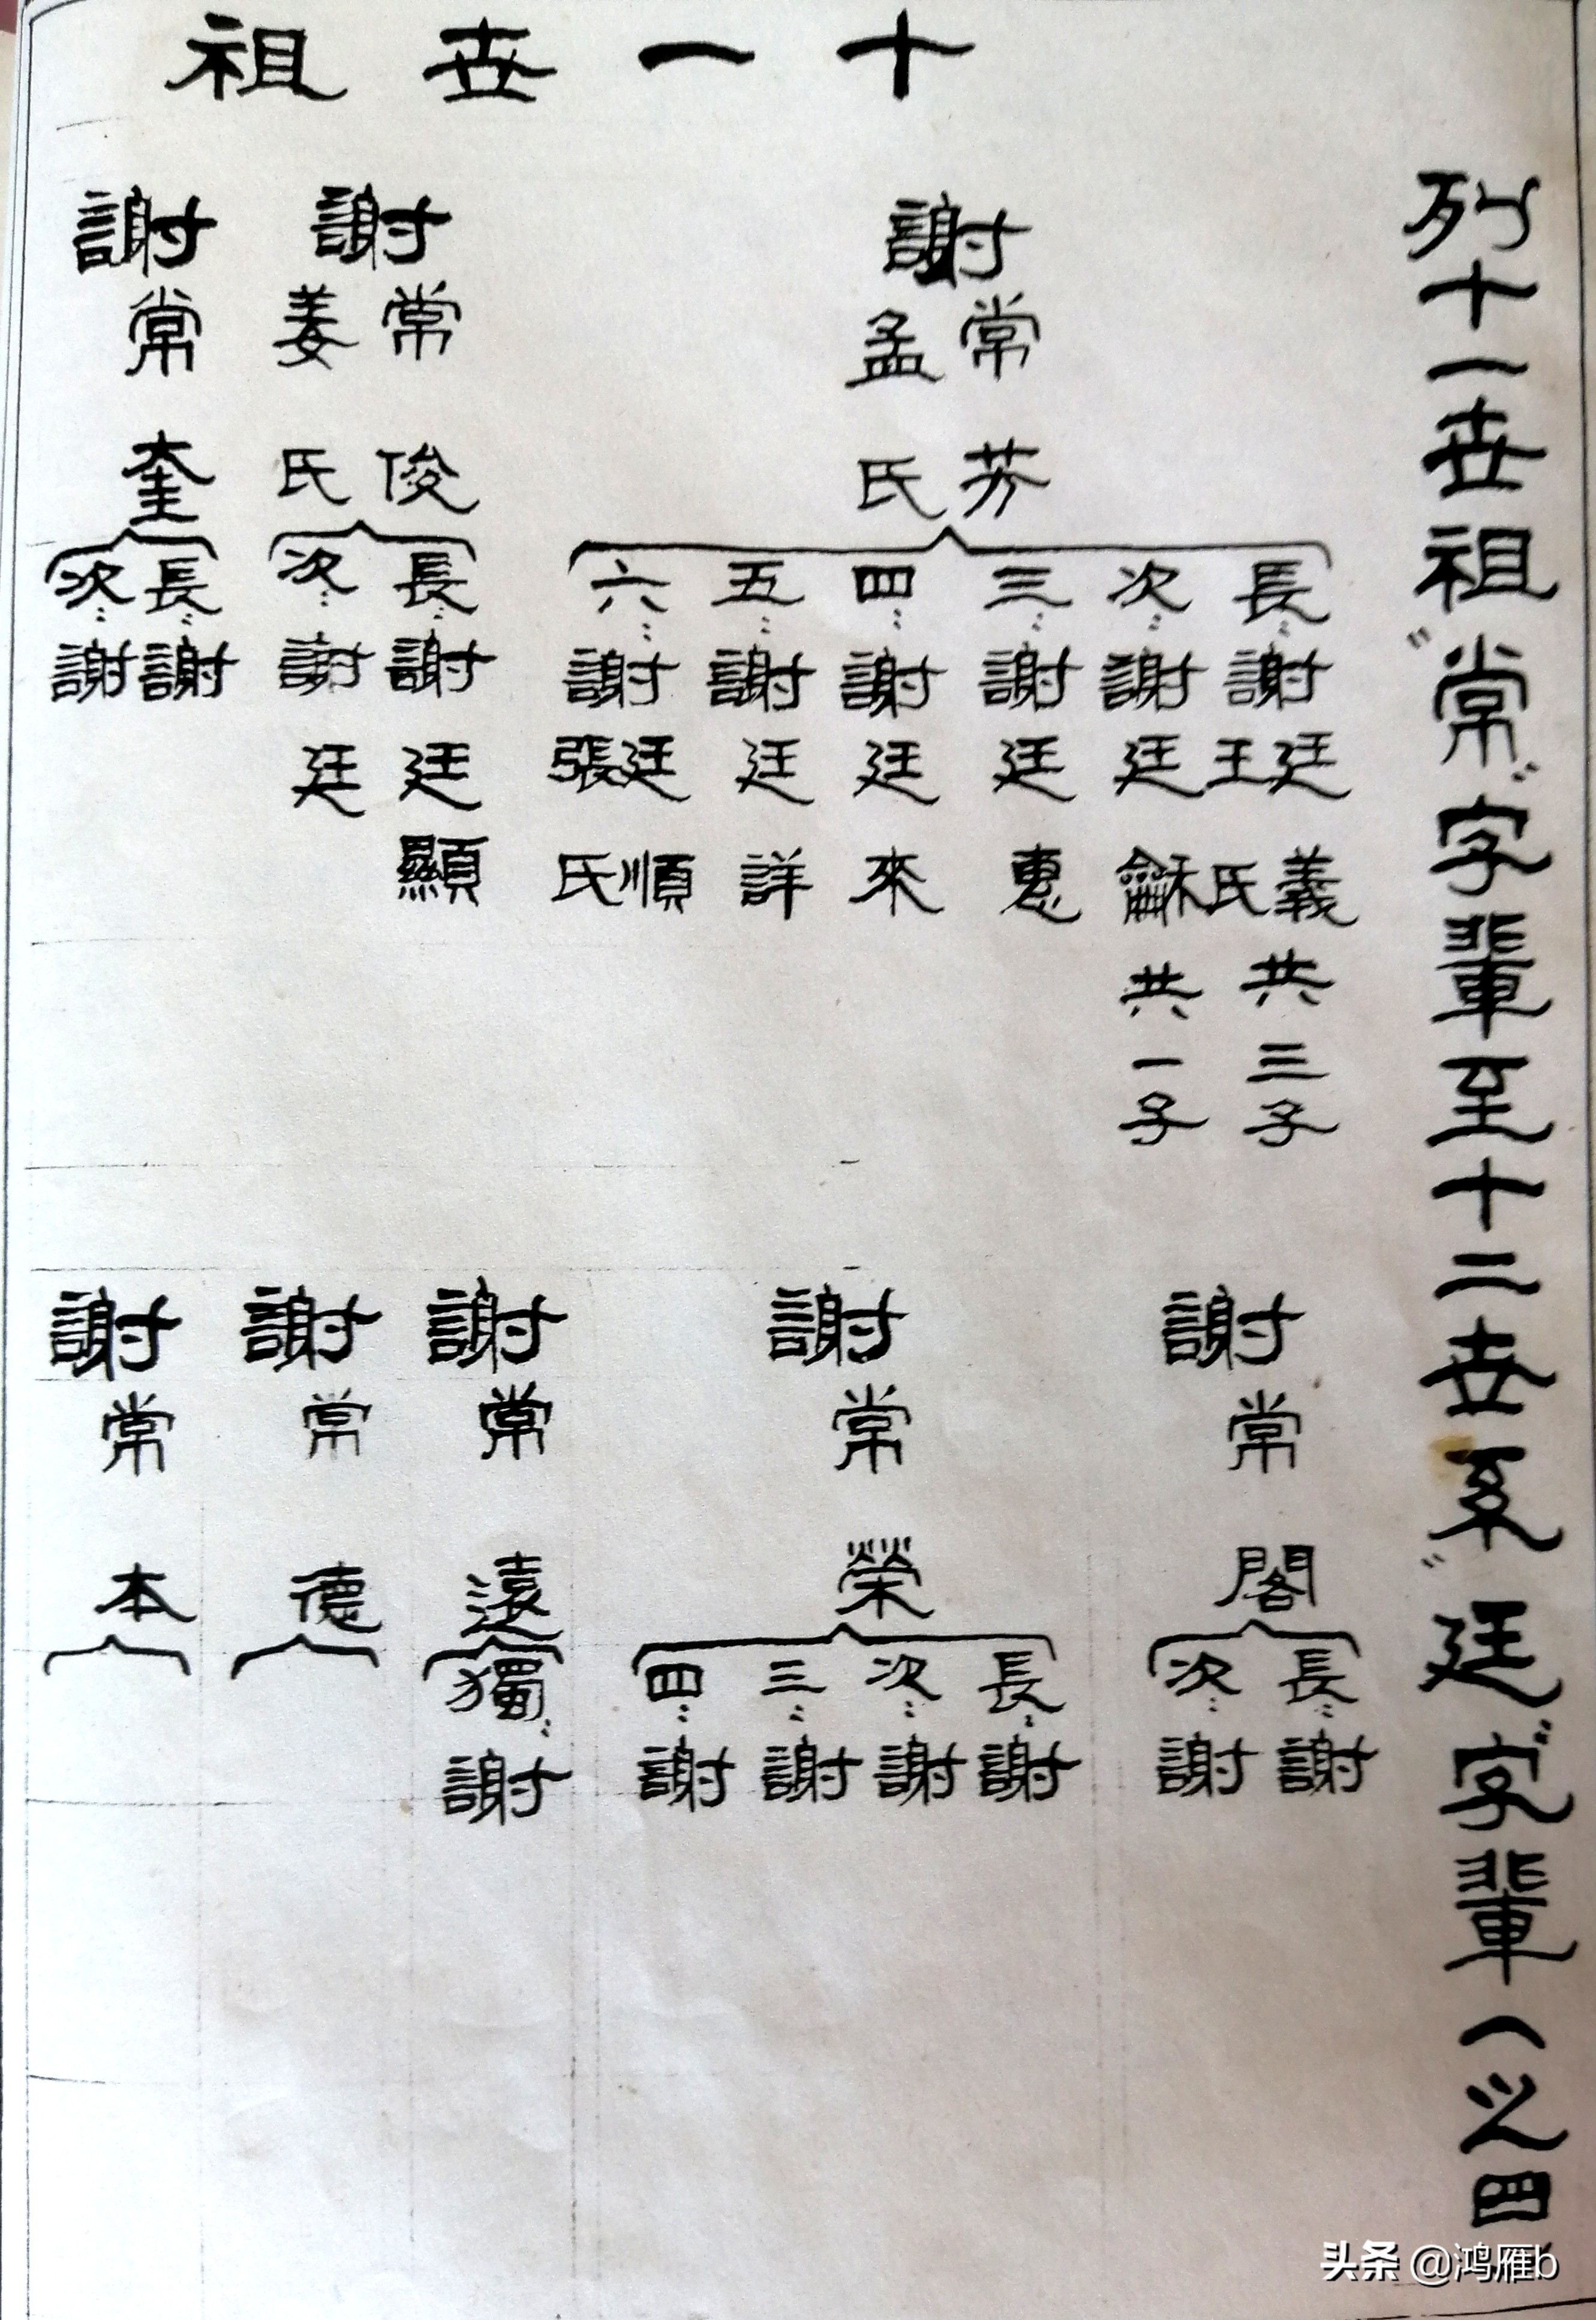 十一世祖
列十一世祖"常"字輩至十二世系"廷"字輩(以四
謝常芳
孟氏
長:謝廷義
王氏共三子
次:謝廷龢共一子
三:謝廷惠
四:謝廷來
五:謝廷詳
六:謝廷順
張氏
謝常俊
姜氏
長:謝廷顯
次:謝廷
謝常奎
長:謝
次:謝
謝常閣
長:謝
次:謝
謝常榮
長:謝
次:謝
三:謝
四:謝
謝常遠
獨:謝
謝常德
謝常本
头条 @鸿雁b